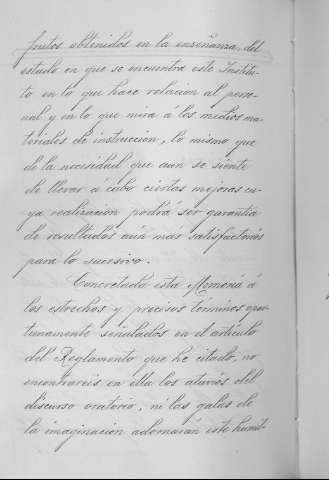 frutos obtenidos en la enseñanza, del
estado en que se encuentra este Institu-
to en lo que hace relacion al perso-
nal y en lo que mira á los medios ma-
teriales de instruccion, lo mismo que
de la necesidad que aún se siente
de llevar á cabo ciertas mejoras cu-
ya realizacion podrá ser garantia
de resultados aún mas satisfactorios
para lo sucesivo.
Concretada esta Memoria á
los estrechos y precisos términos opor-
tunamente señalados en el artículo
del Reglamento que he citado, no
encontrareis en ella los atavios del
discurso oratorio, ni las galas de
la imaginacion adornarán este humil-